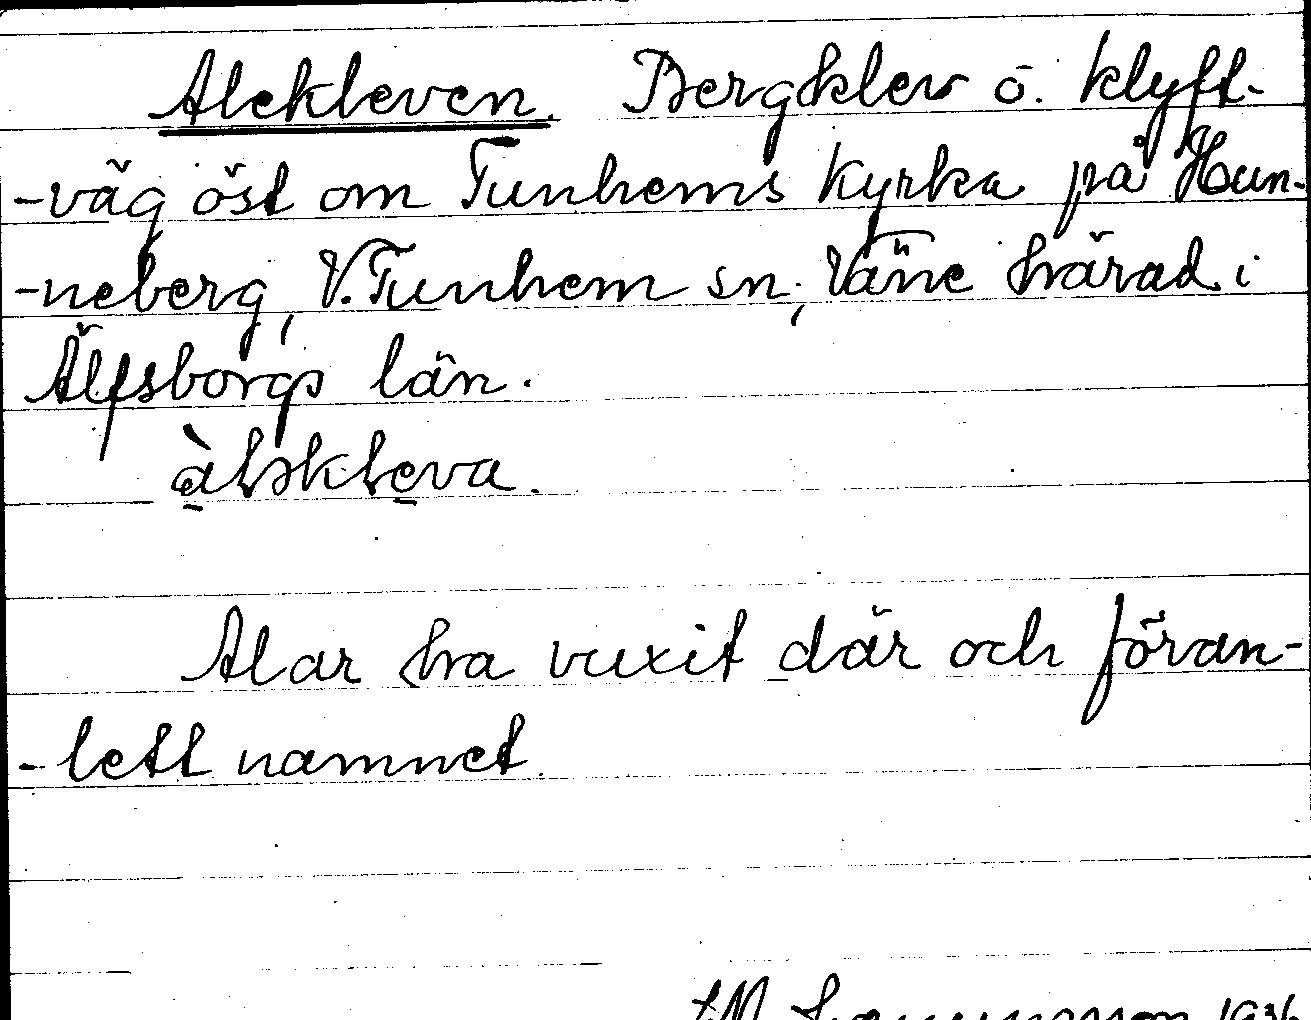 Alekleven. Bergklev o. klyft-
-väg öst om Tunhems kyrka på Hun-
-neberg, V. Tunhem sn, Väne härad i
Älfsborgs län.
àlskleva.
Alar ha vuxit där och föran-
-lett namnet.
1936